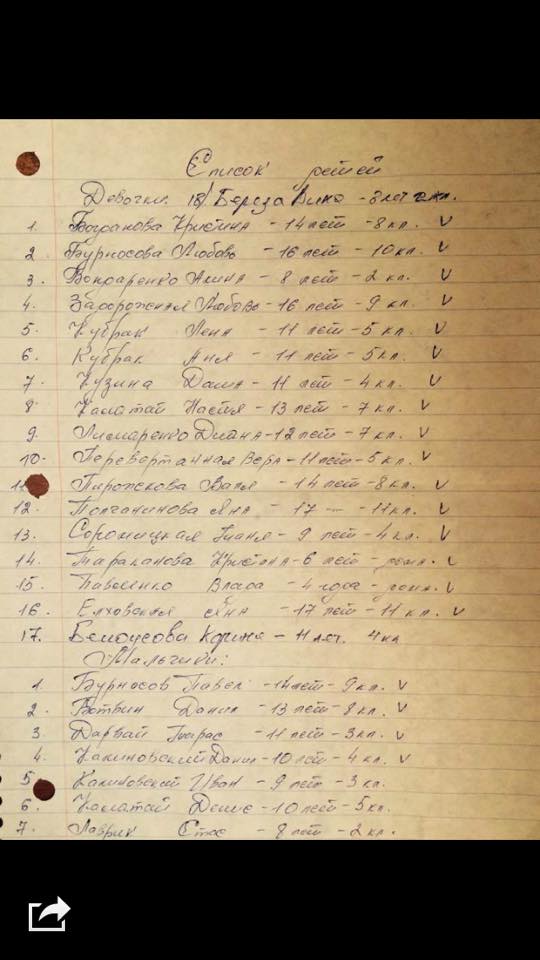 Список детей
Девочки: 18) Береза Вика - 8 лет 2 кл.
1. Богданова Кристина - 14 лет - 8 кл. V
2 Бурносова Любовь - 16 лет - 10 кл. V
3. Бондаренко Алина - 8 лет - 2 кл. V
4. Задорожная Любовь - 16 лет - 9 кл. V
5. Кубрак Лена - 11 лет - 5 кл. V
6. Кубрак Аня - 11 лет - 5 кл. V
7. Кузина Даша - 11 лет - 4 кл. V
8 Каматай Настя - 13 лет - 7 кл. V
9. Лисмаренко Диана - 12 лет - 7 кл. V
10. Перевертанная Вера - 11 лет - 5 кл. V
11. Пирожкова Валя - 14 лет - 8 кл. V
12. Яна - 17 - 11 кл. V
13. Таня - 9 лет - 4 кл. V
14. Тараканова Кристина - 6 лет - V
15. Влада - 4 года - V
16. Елховская Яна - 17 лет - 11 кл. V
17. Белоусова Карина - 11 лет. 4 кл
Мальчики:
1. Бурносов Павел - 14 лет - 9 кл. V
2. Вотвин Данил - 13 лет - 8 кл. V
3. Дарвай Тарас - 11 лет - 3 кл. V
4. Калиновский Данил - 10 лет - 4 кл. V
5 Калиновский Иван - 9 лет - 3 кл.
6. Каматай Денис - 10 лет - 5 кл.
7. Лаврик Стас - 8 лет - 2 кл.